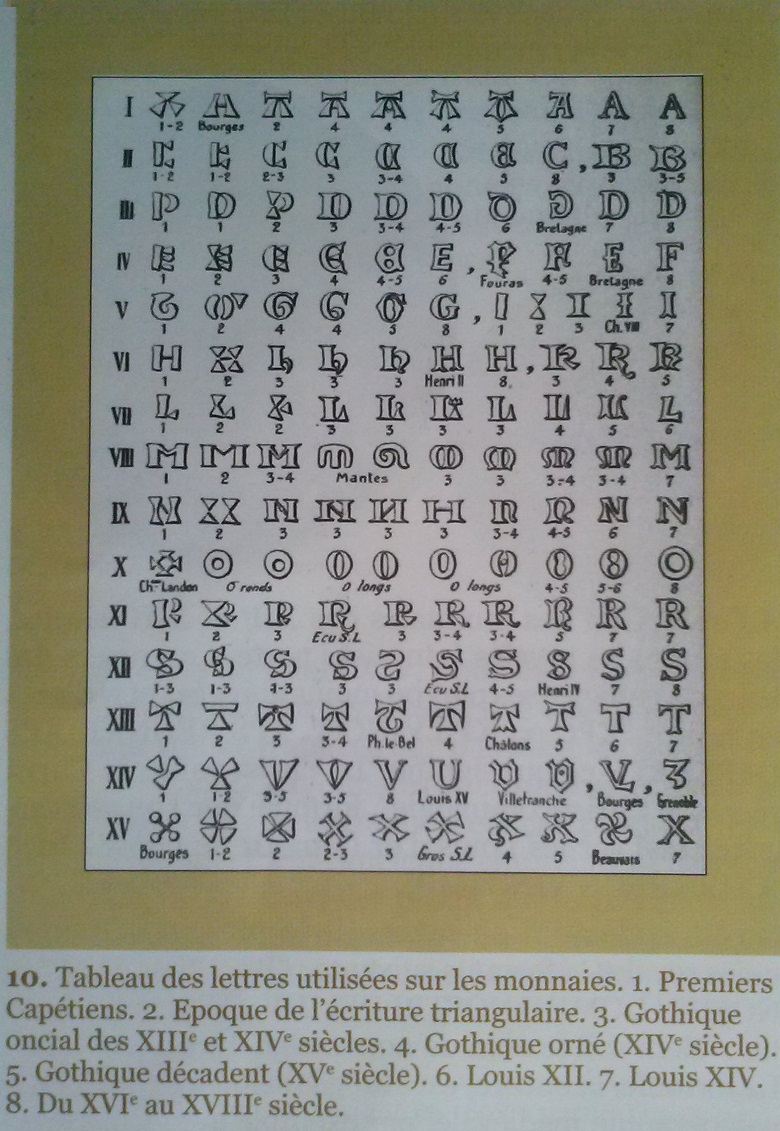 I A A A A A A A A A A
1-2 Bourges 2 4 4 4 5 6 7 8
II C C C C C C C C , B B
1-2 1-2 2-3 3 3-4 4 5 8 3 3-5
III D D D D D D D D D D
1 1 2 3 3-4 4-5 6 Bretagne 7 8
IV E E E E E E , F F F F
1 2 3 4 4-5 6 Fouras 4-5 Bretagne 8
V G G G G G G , I I I I I
1 2 4 4 5 8 1 2 3 Ch. VIII 7
VI H H H H H H H , K K K
1 2 3 3 3 Henri II 8. 3 4 5
VII L L L L L L L L L L
1 2 2 3 3 3 3 4 5 6
VIII M M M M M M M M M M
1 2 3-4 Mantes 3 3 3-4 3-4 7
IX N N N N N N N N N N
1 2 3 3 3 3 3-4 4-5 6 7
X O O O O O O O O O O
Ch.au Landon O ronds O longs O longs 4-5 5-6 8
XI R R R R R R R R R R
1 2 3 Ecu S.L 3 3-4 3-4 5 7 7
XII S S S S S S S S S S
1-3 1-3 1-3 3 3 Ecu S.L 4-5 Henri IV 7 8
XIII T T T T T T T T T T
1 2 3 3-4 Ph. le Bel 4 Châlons 5 6 7
XIV V V V V V U V V , V , Z
1 1-2 3-5 3-5 8 Louis XV Villefranche Bourges Grenoble
XV X X X X X X X X X X
Bourges 1-2 2 2-3 3 Gros S.L 4 5 Beauvais 7
10. Tableau des lettres utilisées sur les monnaies. 1. Premiers
Capétiens. 2. Epoque de l'écriture triangulaire. 3. Gothique
oncial des XIIIe et XIVe siècles. 4. Gothique orné (XIVe siècle).
5. Gothique décadent (XVe siècle). 6. Louis XII. 7. Louis XIV.
8. Du XVIe au XVIIIe siècle.